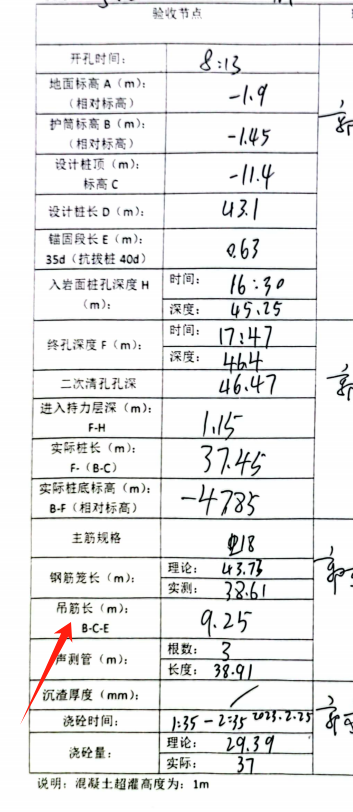 验收节点
开孔时间: 8:13
地面标高 A（m）: -1.9
（相对标高）
护筒标高 B（m）: -1.45
（相对标高）
设计桩顶（m）: -11.4
标高 C
设计桩长 D（m）: 43.1
锚固段长 E（m）: 0.63
35d（抗拔桩 40d）
入岩面桩孔深度 H 时间: 16:30
（m）: 深度: 45.25
终孔深度 F（m）: 时间: 17:47
深度: 46.4
二次清孔孔深 46.47
进入持力层深（m）: 1.15
F-H
实际桩长（m）: 37.45
F-（B-C）
实际桩底标高（m）: -47.85
B-F（相对标高）
主筋规格 18
钢筋笼长（m）: 理论: 43.73
实测: 38.61
吊筋长（m）: 9.25
B-C-E
声测管（m）: 根数: 3
长度: 38.91
沉渣厚度（mm）: /
浇砼时间: 1:35 - 2:35 2023.2.25
浇砼量: 理论: 29.39
实际: 37
说明：混凝土超灌高度为：1m